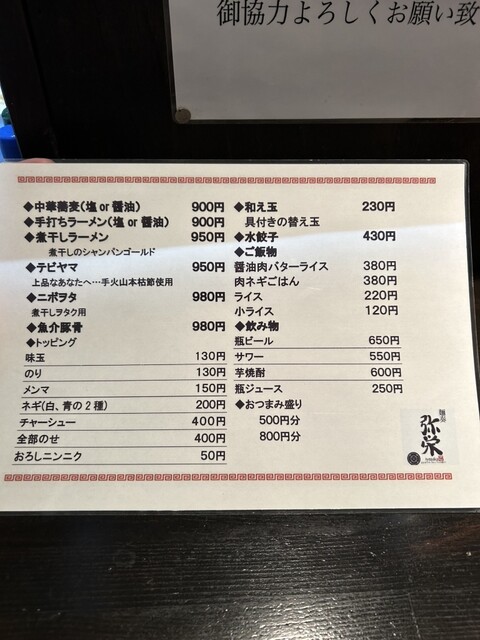 御協力よろしくお願い致
◆中華蕎麦(塩 or 醤油) 900円
◆手打ちラーメン(塩 or 醤油) 900円
◆煮干しラーメン 950円
煮干しのシャンパンゴールド
◆テビヤマ 950円
上品なあなたへ…手火山本枯節使用
◆ニボヲタ 980円
煮干しヲタク用
◆魚介豚骨 980円
◆トッピング
味玉 130円
のり 130円
メンマ 150円
ネギ(白、青の2種) 200円
チャーシュー 400円
全部のせ 400円
おろしニンニク 50円
◆和え玉 230円
具付きの替え玉
◆水餃子 430円
◆ご飯物
醤油肉バターライス 380円
肉ネギごはん 380円
ライス 220円
小ライス 120円
◆飲み物
瓶ビール 650円
サワー 550円
芋焼酎 600円
瓶ジュース 250円
◆おつまみ盛り
500円分
800円分
弥栄